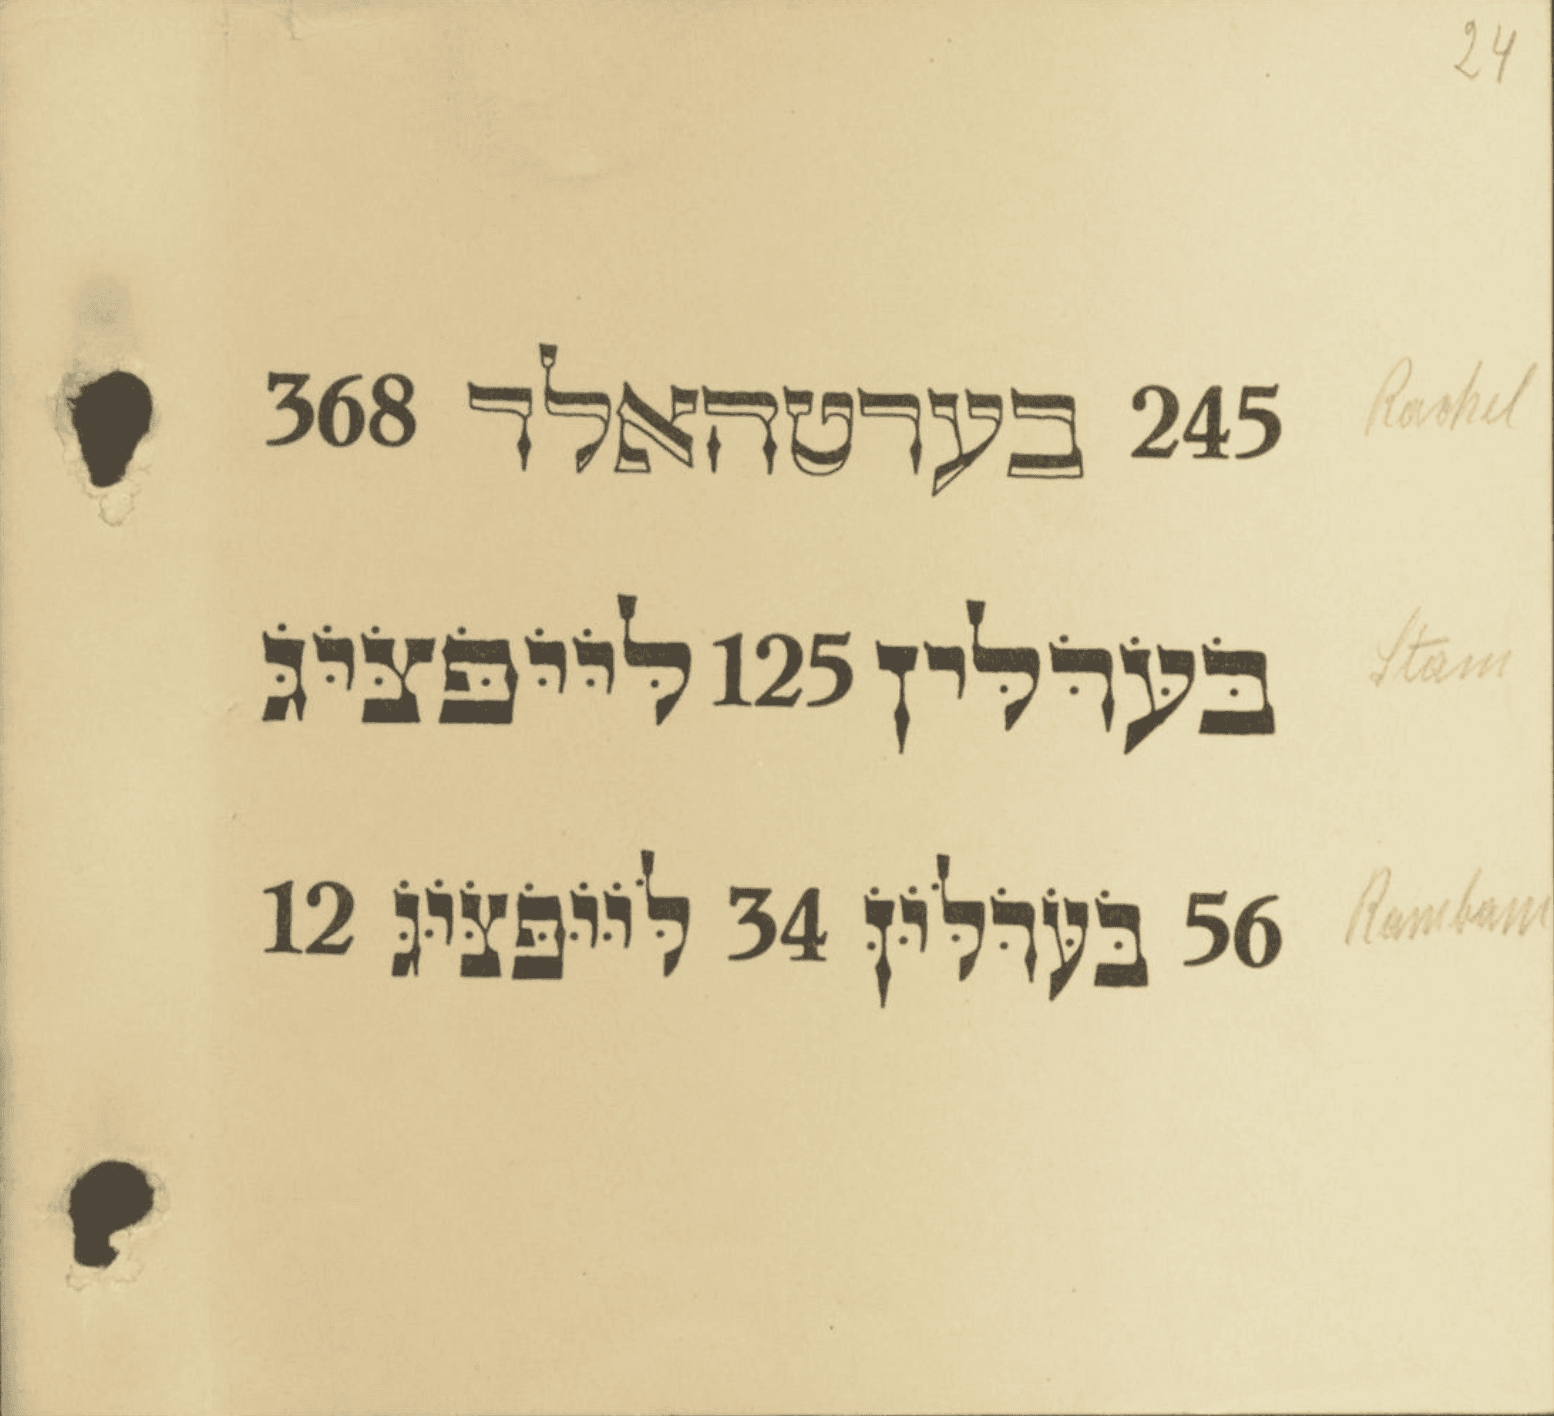 24
245 בערטהאלד 368 Rachel
בֹּעֹּרֹּלּין 125 לּיֹּיֹּפֹּצֹּיֹּגֹּ Stam
56 בֹּעֹּרֹּלֹּיֹּןֹּ 34 לֹּיֹּיֹּפֹּצֹּיֹּגֹּ 12 Rambam